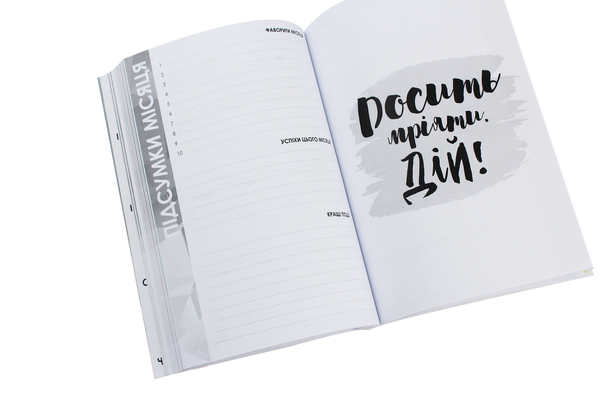 ПІДСУМКИ МІСЯЦЯ
ФАВОРИТИ МІСЯЦЯ
1
2
3
4
5
6
7
8
9
10
УСПІХИ ЦЬОГО МІСЯЦЯ
КРАЩІ ПОДІ
Досить
мріяти.
Дій!